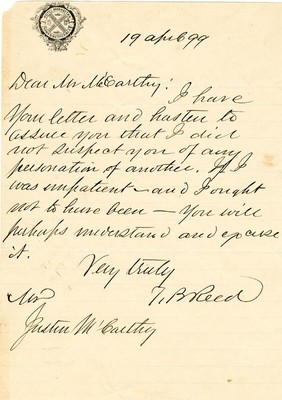 19 april 99
Dear Mr McCarthy:
I have
your letter and hasten to
assure you that I did
not suspect you of any
personation of another. If I
was impatient - and I ought
not to have been - you will
perhaps understand and excuse
it.
Very truly
T. B Reed
Justin McCarthy